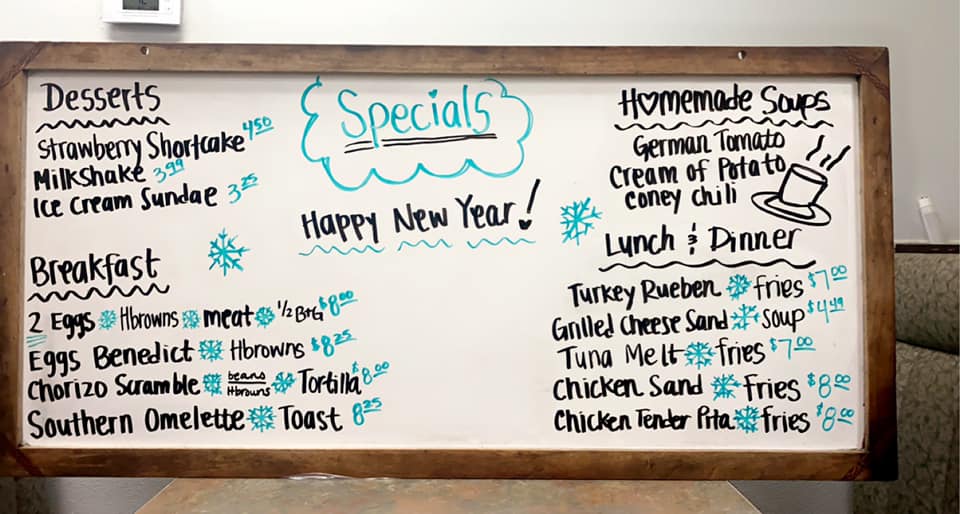 Desserts
Strawberry Shortcake 4.50
Milkshake 3.99
Ice Cream Sundae 3.25
Breakfast
2 Eggs Hbrowns meat 1/2 B+G $8.00
Eggs Benedict Hbrowns $8.25
Chorizo Scramble beans Hbrowns Tortilla $8.00
Southern Omelette Toast 8.25
Specials
Happy New Year!
Homemade Soups
German Tomato
Cream of Potato
Coney chili
Lunch & Dinner
Turkey Rueben fries $7.00
Grilled Cheese Sand Soup $4.49
Tuna Melt fries $7.00
Chicken Sand Fries $8.00
Chicken Tender Pita fries $8.00